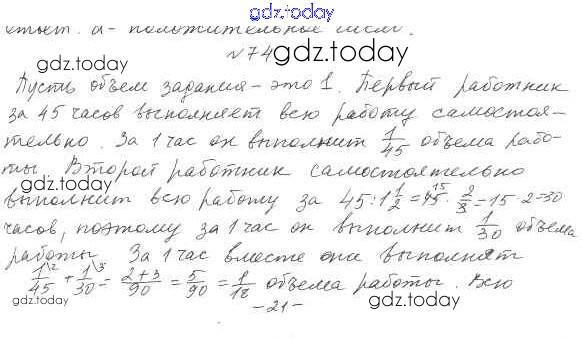 gdz.today
ответ. а - положительные числа.
№ 74 gdz.today
gdz.today
Пусть объем задания - это 1. Первый работник
за 45 часов выполняет всю работу самостоя-
тельно. За 1 час он выполнит 1/45 объема рабо-
ты. Второй работник самостоятельно
gdz.today
выполнит всю работу за 45 : 1 1/2 = 45 15 · 2/3 = 15 · 2 = 30
часов, поэтому за 1 час он выполнит 1/30 объема
работы. За 1 час вместе они выполнят
gdz.today
1/45 \2 + 1/30 \3 = 2+3/90 = 5/90 = 1/18 объема работы. Всю
- 21 -
gdz.today